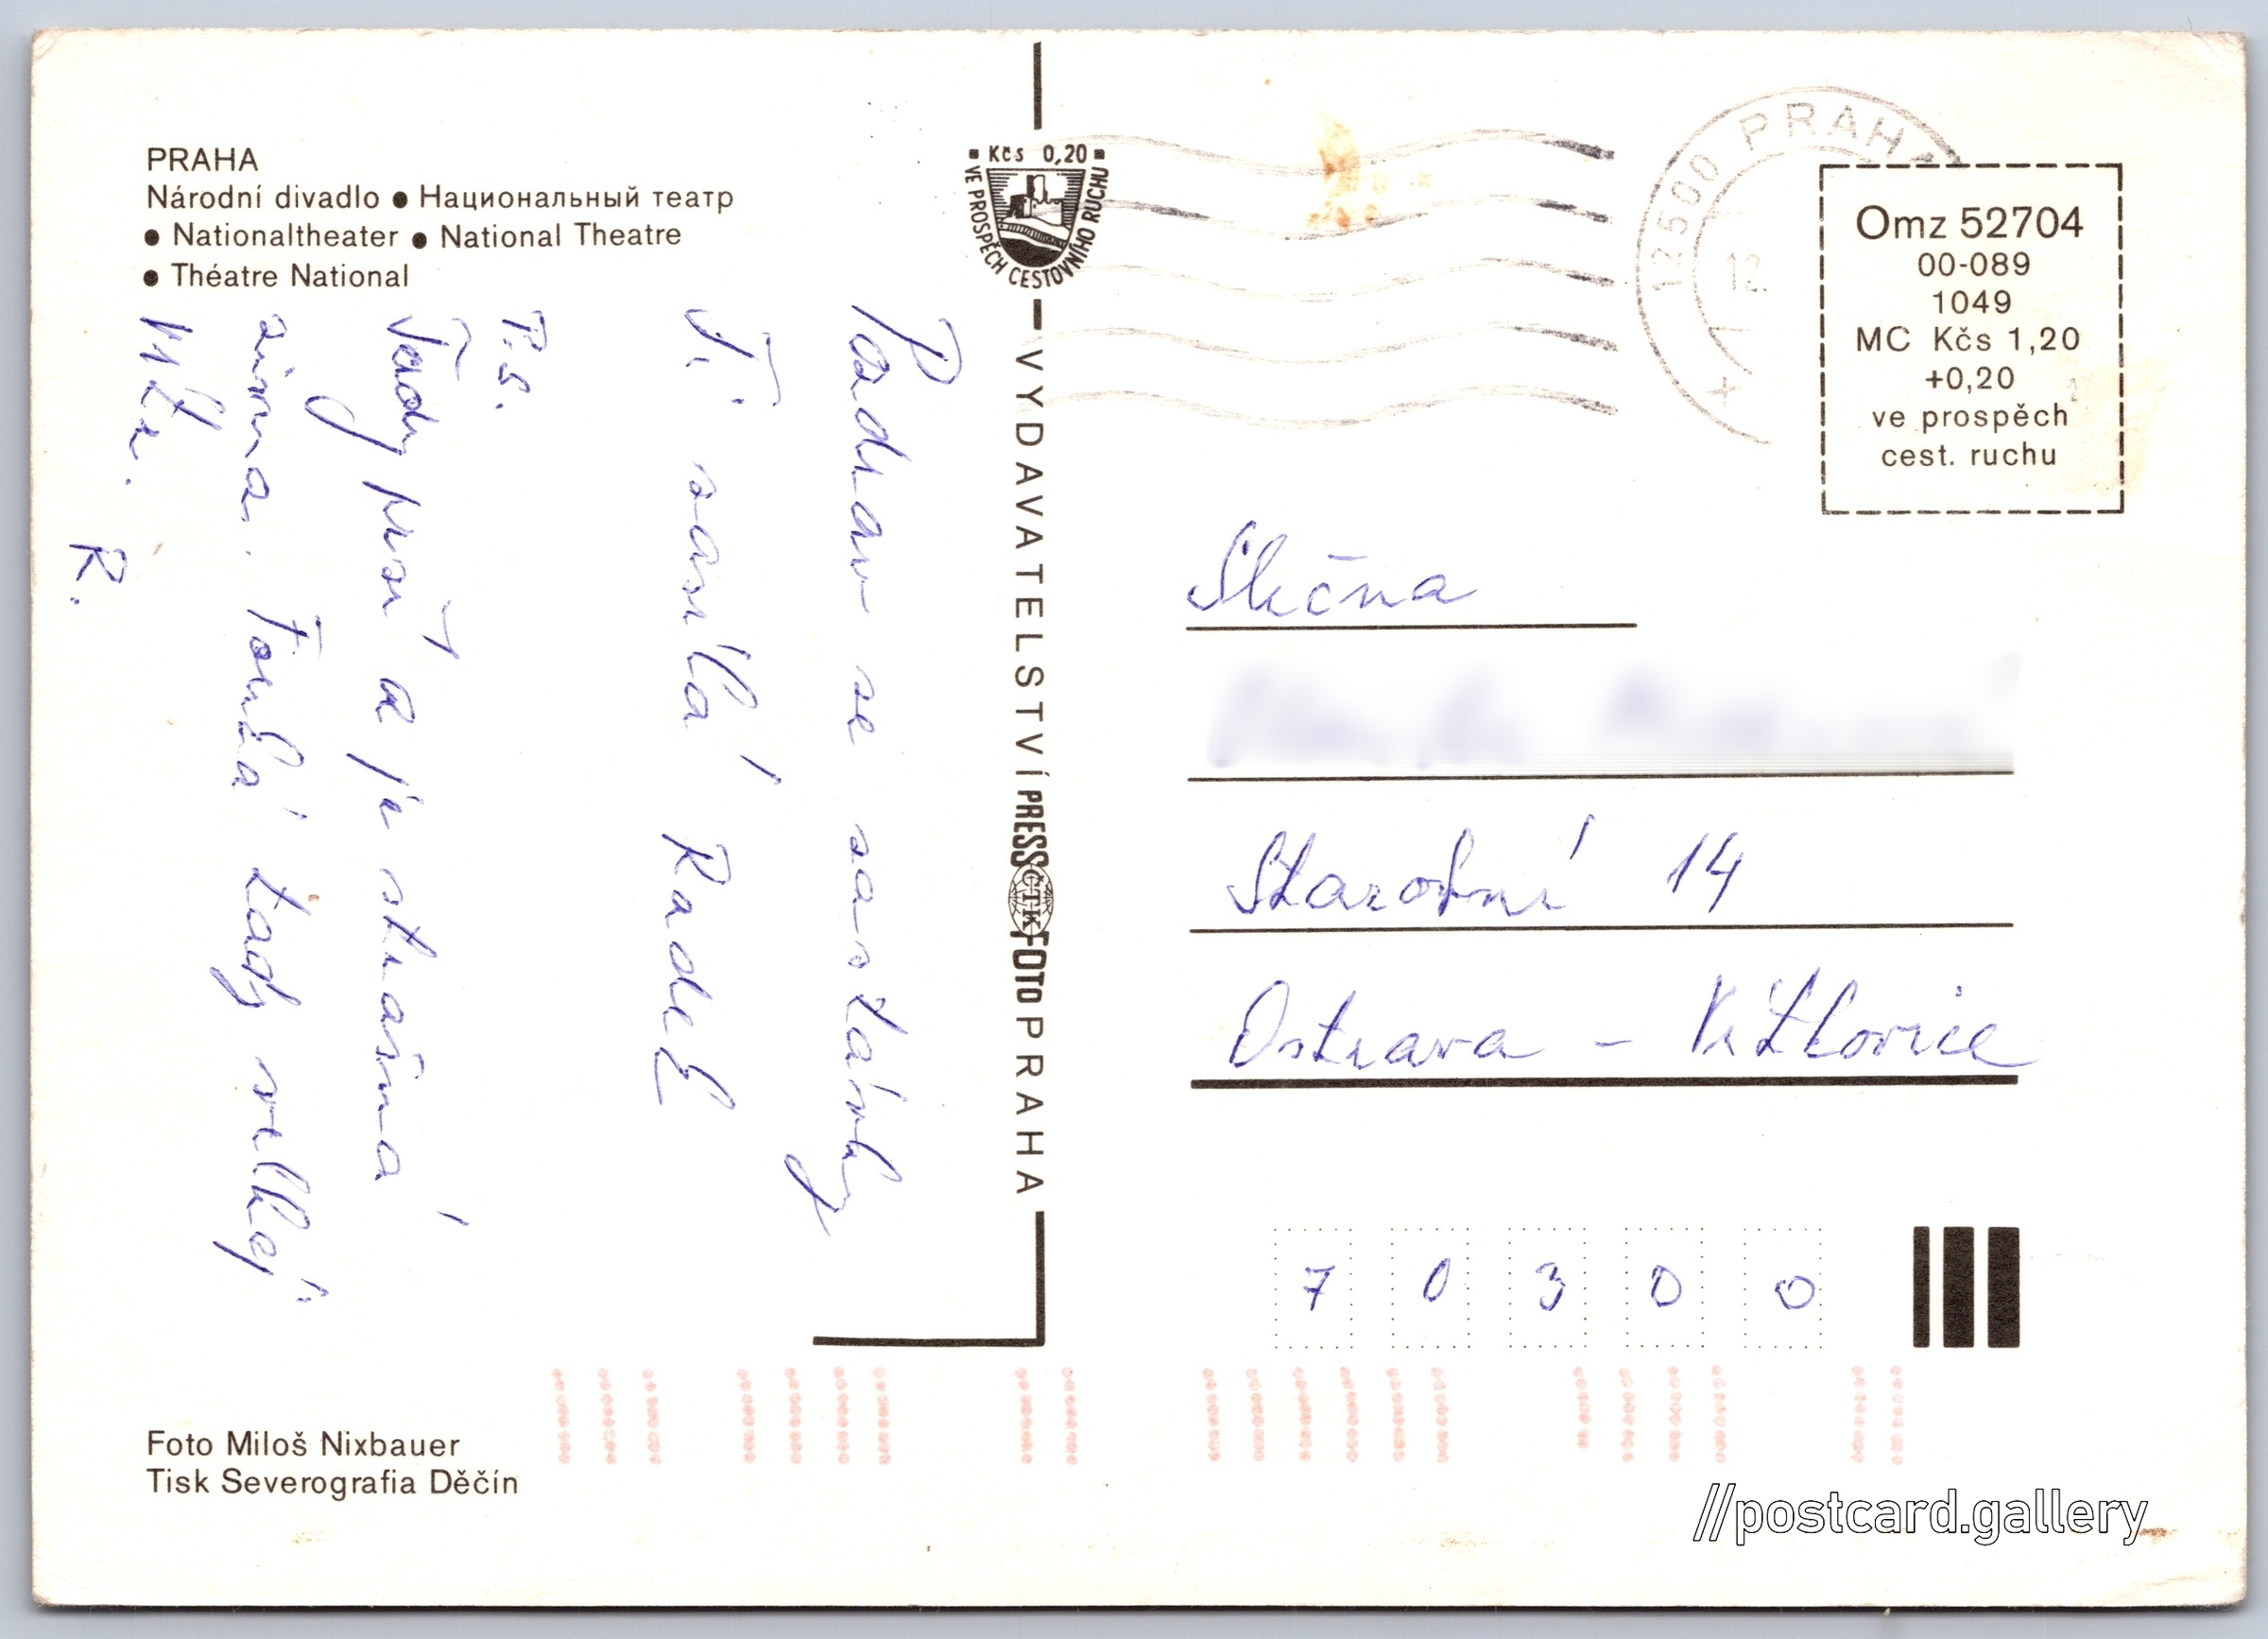 PRAHA
Národní divadlo ● Национальный театр
● Nationaltheater ● National Theatre
● Théatre National
Kčs 0,20
VE PROSPĚCH CESTOVNÍHO RUCHU
VYDAVATELSTVÍ PRESSFOTO PRAHA
ČTK
12500 PRAHA
12.
Omz 52704
00-089
1049
MC Kčs 1,20
+0,20
ve prospěch
cest. ruchu
Pozdrav se
Ti Radek
P.S.
Tady prší a je strašná
zima. tady
R.
Slečna
14
Ostrava - Vítkovice
7 0 3 0 0
Foto Miloš Nixbauer
Tisk Severografia Děčín
//postcard.gallery